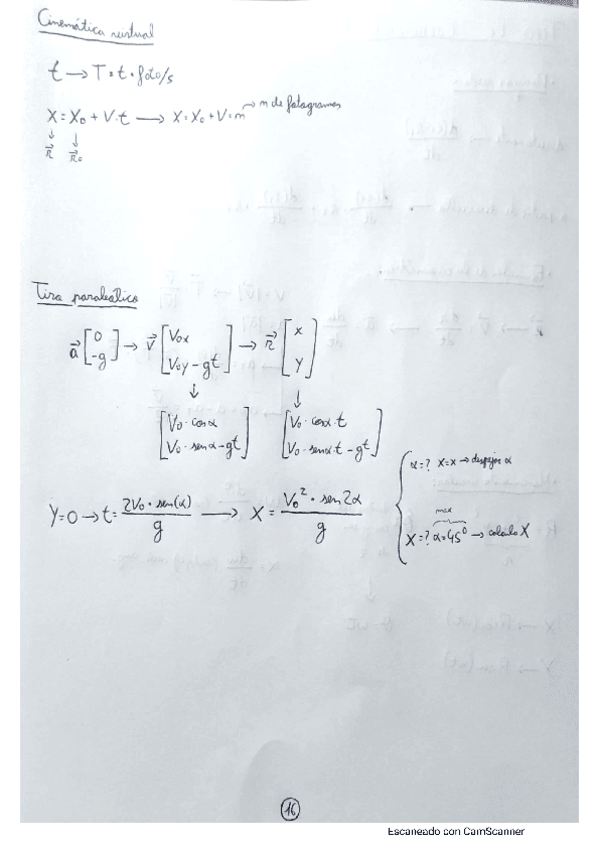 Cinemática virtual
t → T = t · foto/s
X = X₀ + V·t → X = X₀ + V·m → m de fotogramas
↓ ↓
r⃗ r⃗₀
Tiro parabólico
a⃗ [0 -g] → v⃗ [V₀x V₀y - gt] → r⃗ [x y]
↓ ↓
[V₀ · cosα V₀ · senα - gt] [V₀ · cosα·t V₀ · senα·t - gt]
Y=0 → t = 2V₀ · sen(α) / g → X = V₀² · sen2α / g
α=? X=x → despejar α
max
X=? α=45° → calculo X
16
Escaneado con CamScanner